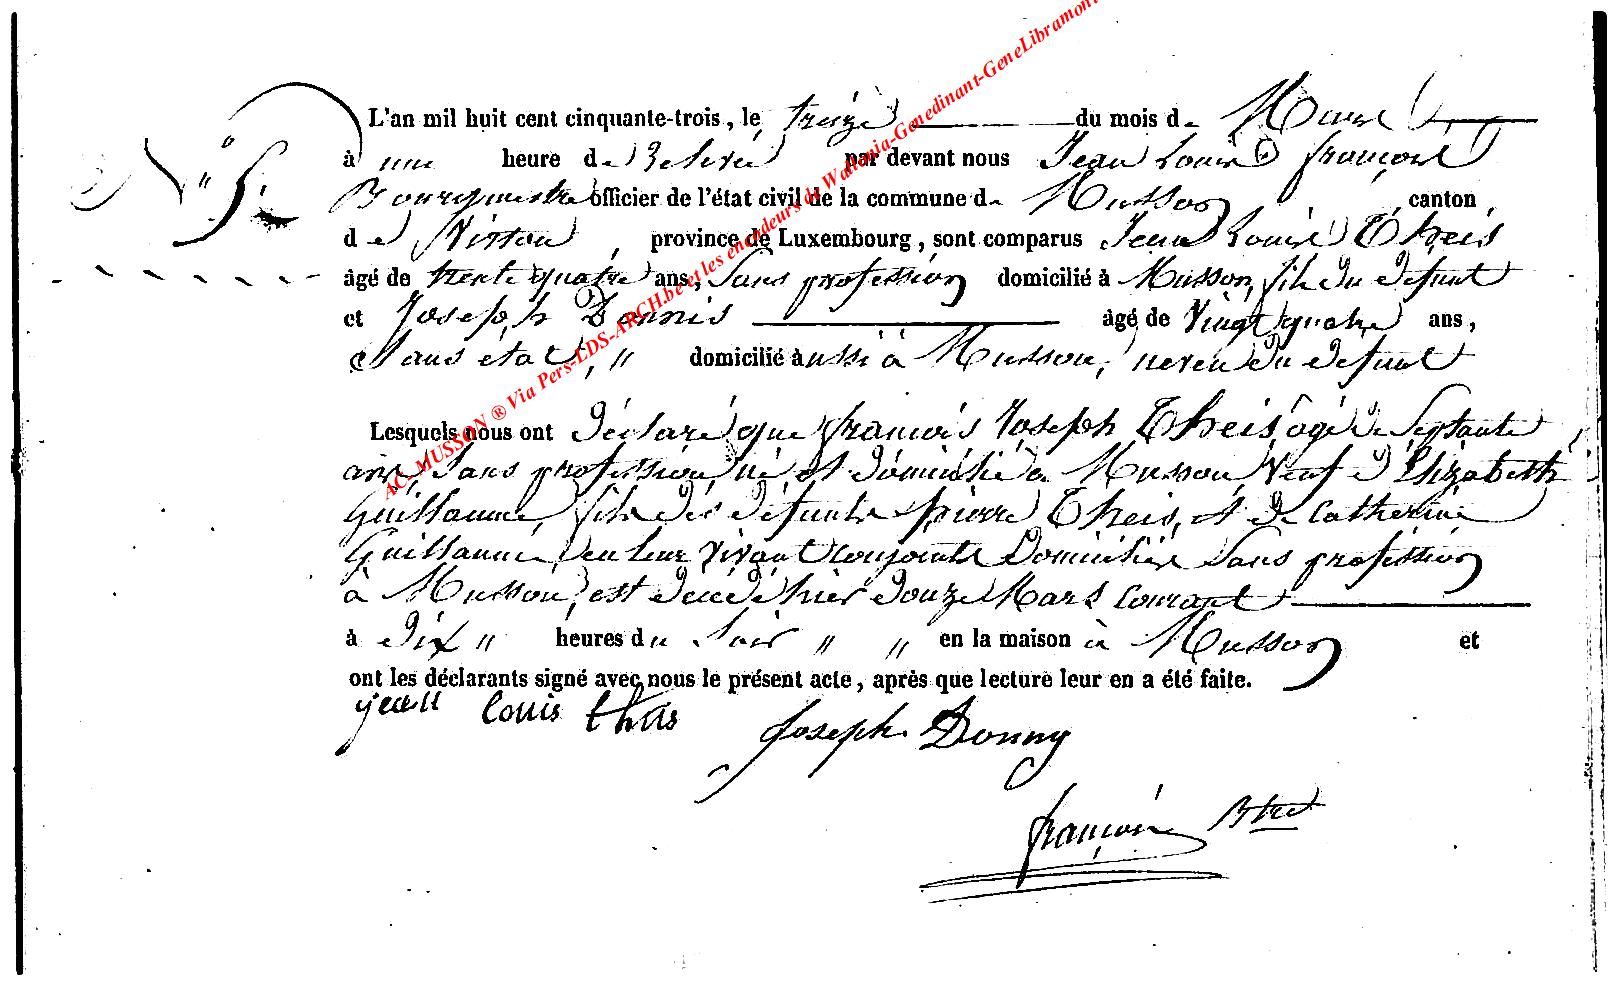 AC. MUSSON ® Via Pers-LDS-ARCH.be et les encodeurs de Wallonia-Genedinant-GeneLibramont
N° 5.
L'an mil huit cent cinquante-trois, le treize du mois de Mars
à une heure de Relevée par devant nous Jean Louis François
Bourgmestre officier de l'état civil de la commune de Musson, canton
de Virton, province de Luxembourg, sont comparus Jean Louis Theis
âgé de trente quatre ans, Sans profession domicilié à Musson, fils du défunt
et Joseph Donnis âgé de Vingt quatre ans,
Sans état, " domicilié aussi à Musson, neveu du défunt
Lesquels nous ont déclaré que françois Joseph Theis âgé de Septante
ans, Sans profession, né et domicilié à Musson Veuf d'Elizabeth
Guillaume, fils des défunts pierre Theis, et de Catherine
Guillaume, en leur vivant conjoints Domiciliés Sans profession
à Musson, est décédé hier douze Mars Courant
à Dix " heures du Soir " " en la maison à Musson et
ont les déclarants signé avec nous le présent acte, après que lecture leur en a été faite.
jean Louis theis Joseph Donny
françois Btre